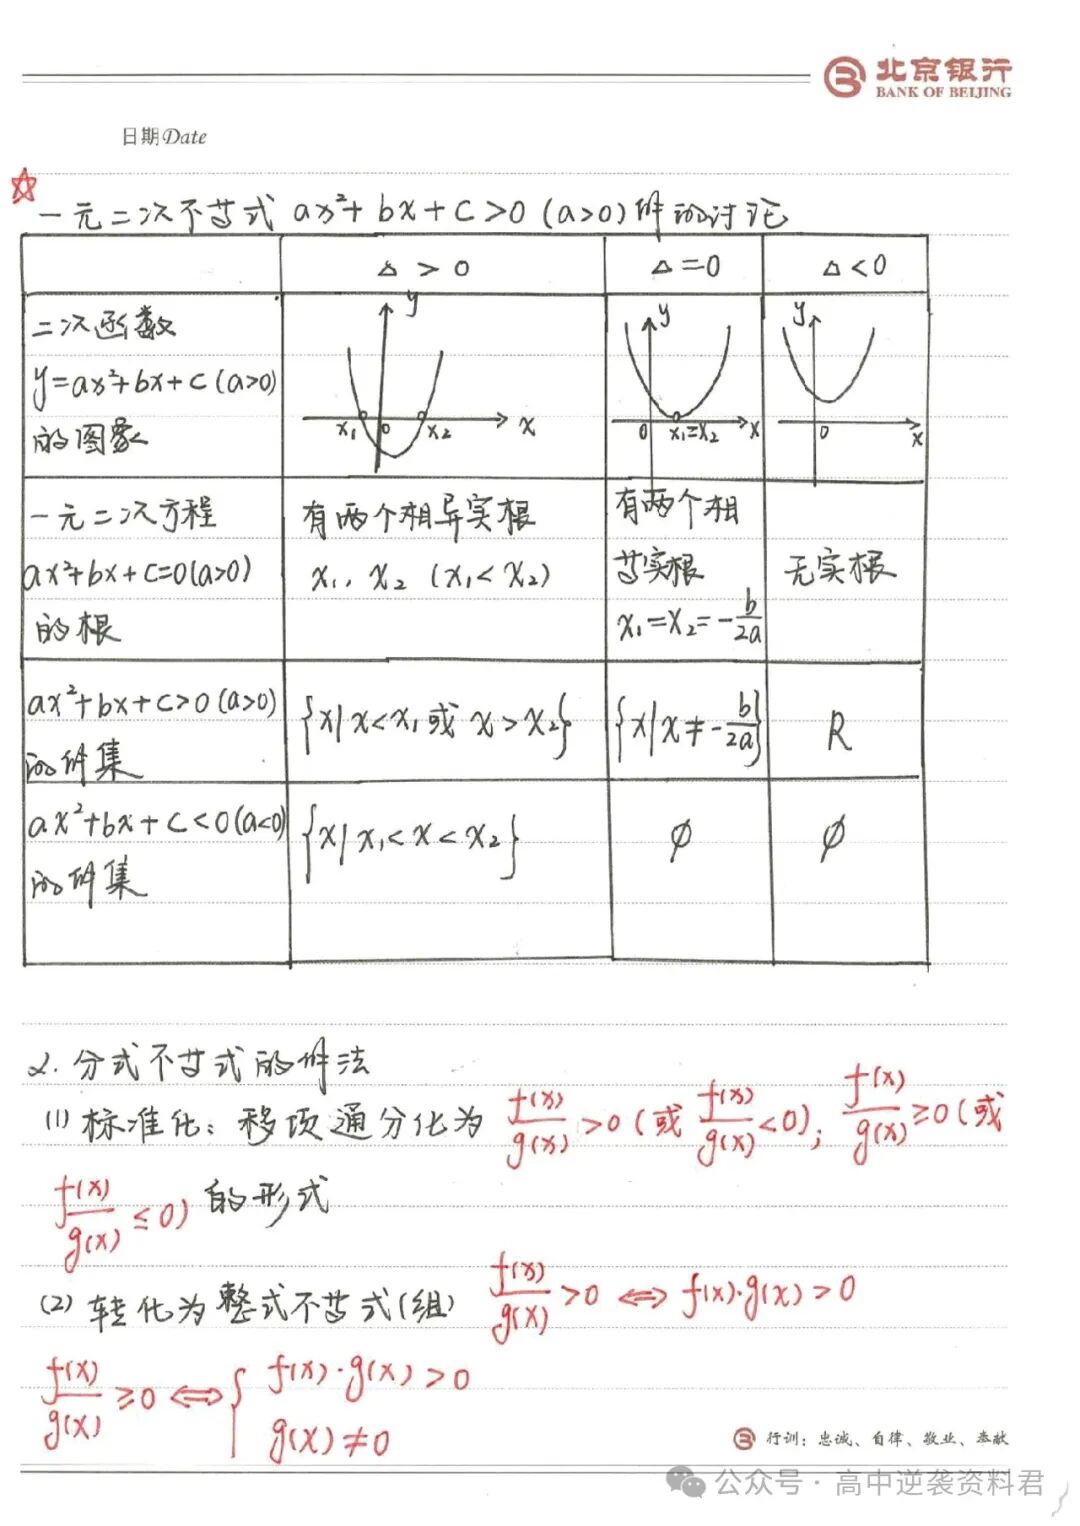 北京银行
BANK OF BEIJING
日期Date
☆
一元二次不等式 ax²+bx+c>0 (a>0)解的讨论
Δ>0 Δ=0 Δ<0
二次函数
y=ax²+bx+c(a>0)
的图象
y
x₁ 0 x₂ x
y
0 x₁=x₂ x
y
0 x
一元二次方程
ax²+bx+c=0(a>0)
的根
有两个相异实根
x₁, x₂ (x₁<x₂)
有两个相
等实根
x₁=x₂=-b/2a
无实根
ax²+bx+c>0(a>0)
的解集
{x|x<x₁或x>x₂}
{x|x≠-b/2a}
R
ax²+bx+c<0(a<0)
的解集
{x|x₁<x<x₂}
∅
∅
2.分式不等式的解法
(1)标准化:移项通分化为 f(x)/g(x)>0(或 f(x)/g(x)<0); f(x)/g(x)≥0(或
f(x)/g(x)≤0)的形式
(2)转化为整式不等式(组) f(x)/g(x)>0⇔f(x)·g(x)>0
f(x)/g(x)≥0⇔{f(x)·g(x)>0
g(x)≠0
行训:忠诚、自律、敬业、奉献
公众号·高中逆袭资料君